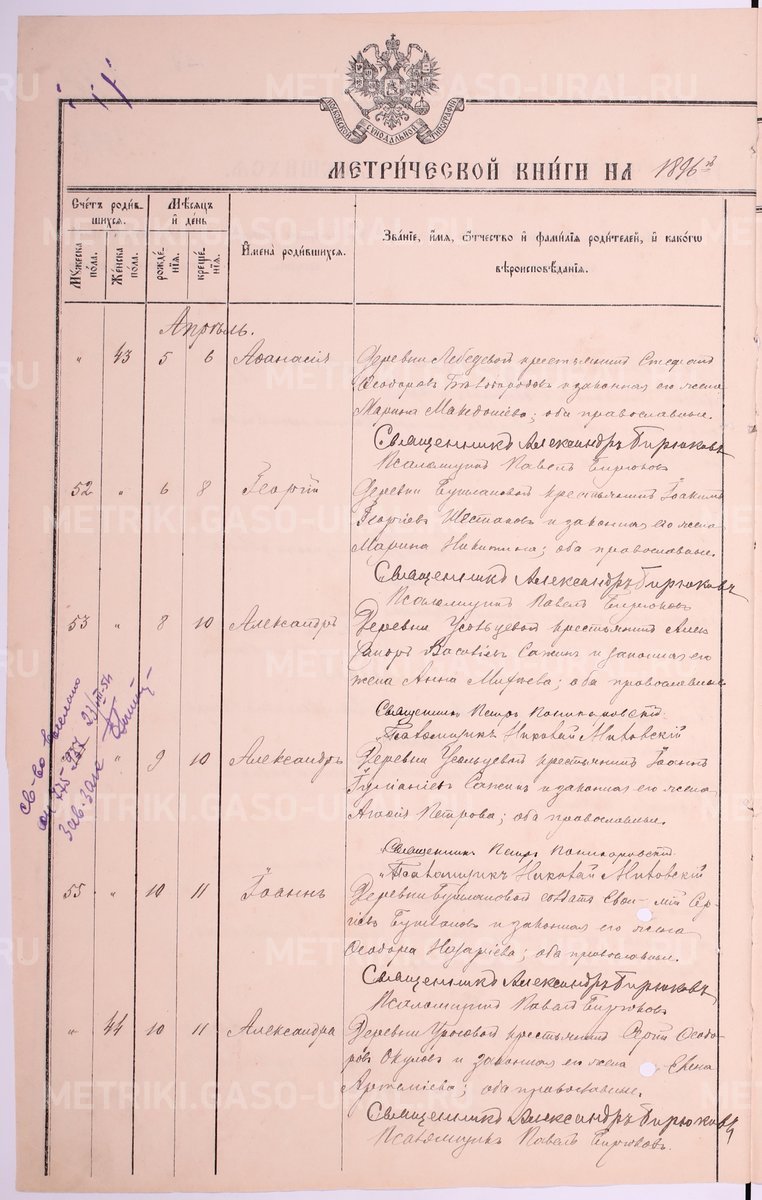 МОСКОВСКОЙ СѴНОДАЛЬНОЙ ТИПОГРАФІИ
МЕТРИ́ЧЕСКОЙ КНИ́ГИ НА 1896 й
Счéтъ роди́в-
шихся.
Мꙋ́жеска
по́ла.
Же́нска
по́ла.
Мѣ́сяцъ
и҆ де́нь
рожде́-
нїѧ.
креще́-
нїѧ.
И҆мена̀ роди́вшихсѧ.
Зва́нїе, и҆́мѧ, ѻ҆́тчество и҆ фами́лїѧ роди́телей, и҆ како́гѡ
вѣроисповѣ́данїѧ.
Апрѣль.
" 43 5 6 Аѳанасія Деревни Лебедевой крестьянинъ Стефанъ
Ѳеодоровъ и законная его жена
Марина ; оба православные.
Священникъ Александръ Бирюковъ
Псаломщикъ Павелъ Бирюковъ
52 " 6 8 Георгій Деревни Бушлановой крестьянинъ Іоакимъ
Георгіевъ Шестаковъ и законная его жена
Марина Никитина; оба православные.
Священникъ Александръ Бирюковъ
Псаломщикъ Павелъ Бирюковъ
53 " 8 10 Александръ Деревни крестьянинъ Алек
сандръ Сажинъ и законная его
жена Анна ; оба православные
Священникъ Петръ Пономаровскій
Николай
" 9 10 Александръ Деревни крестьянинъ Іоаннъ
Сажинъ и законная его жена
Агафія Петрова; оба православные.
Священникъ Петръ Пономаровскій
Николай
св-во выслано
Зав. Загс
55 " 10 11 Іоаннъ Деревни Бушлановой солдатъ Сер-
гіевъ и законная его жена
Ѳеодора Назаріева; оба православные.
Священникъ Александръ Бирюковъ
Псаломщикъ Павелъ Бирюковъ
" 44 10 11 Александра Деревни крестьянинъ Ѳеодо-
ровъ Окуловъ и законная его жена Елена
Артеміева; оба православные.
Священникъ Александръ Бирюковъ
Псаломщикъ Павелъ Бирюковъ.
METRIKI.GASO-URAL.RU